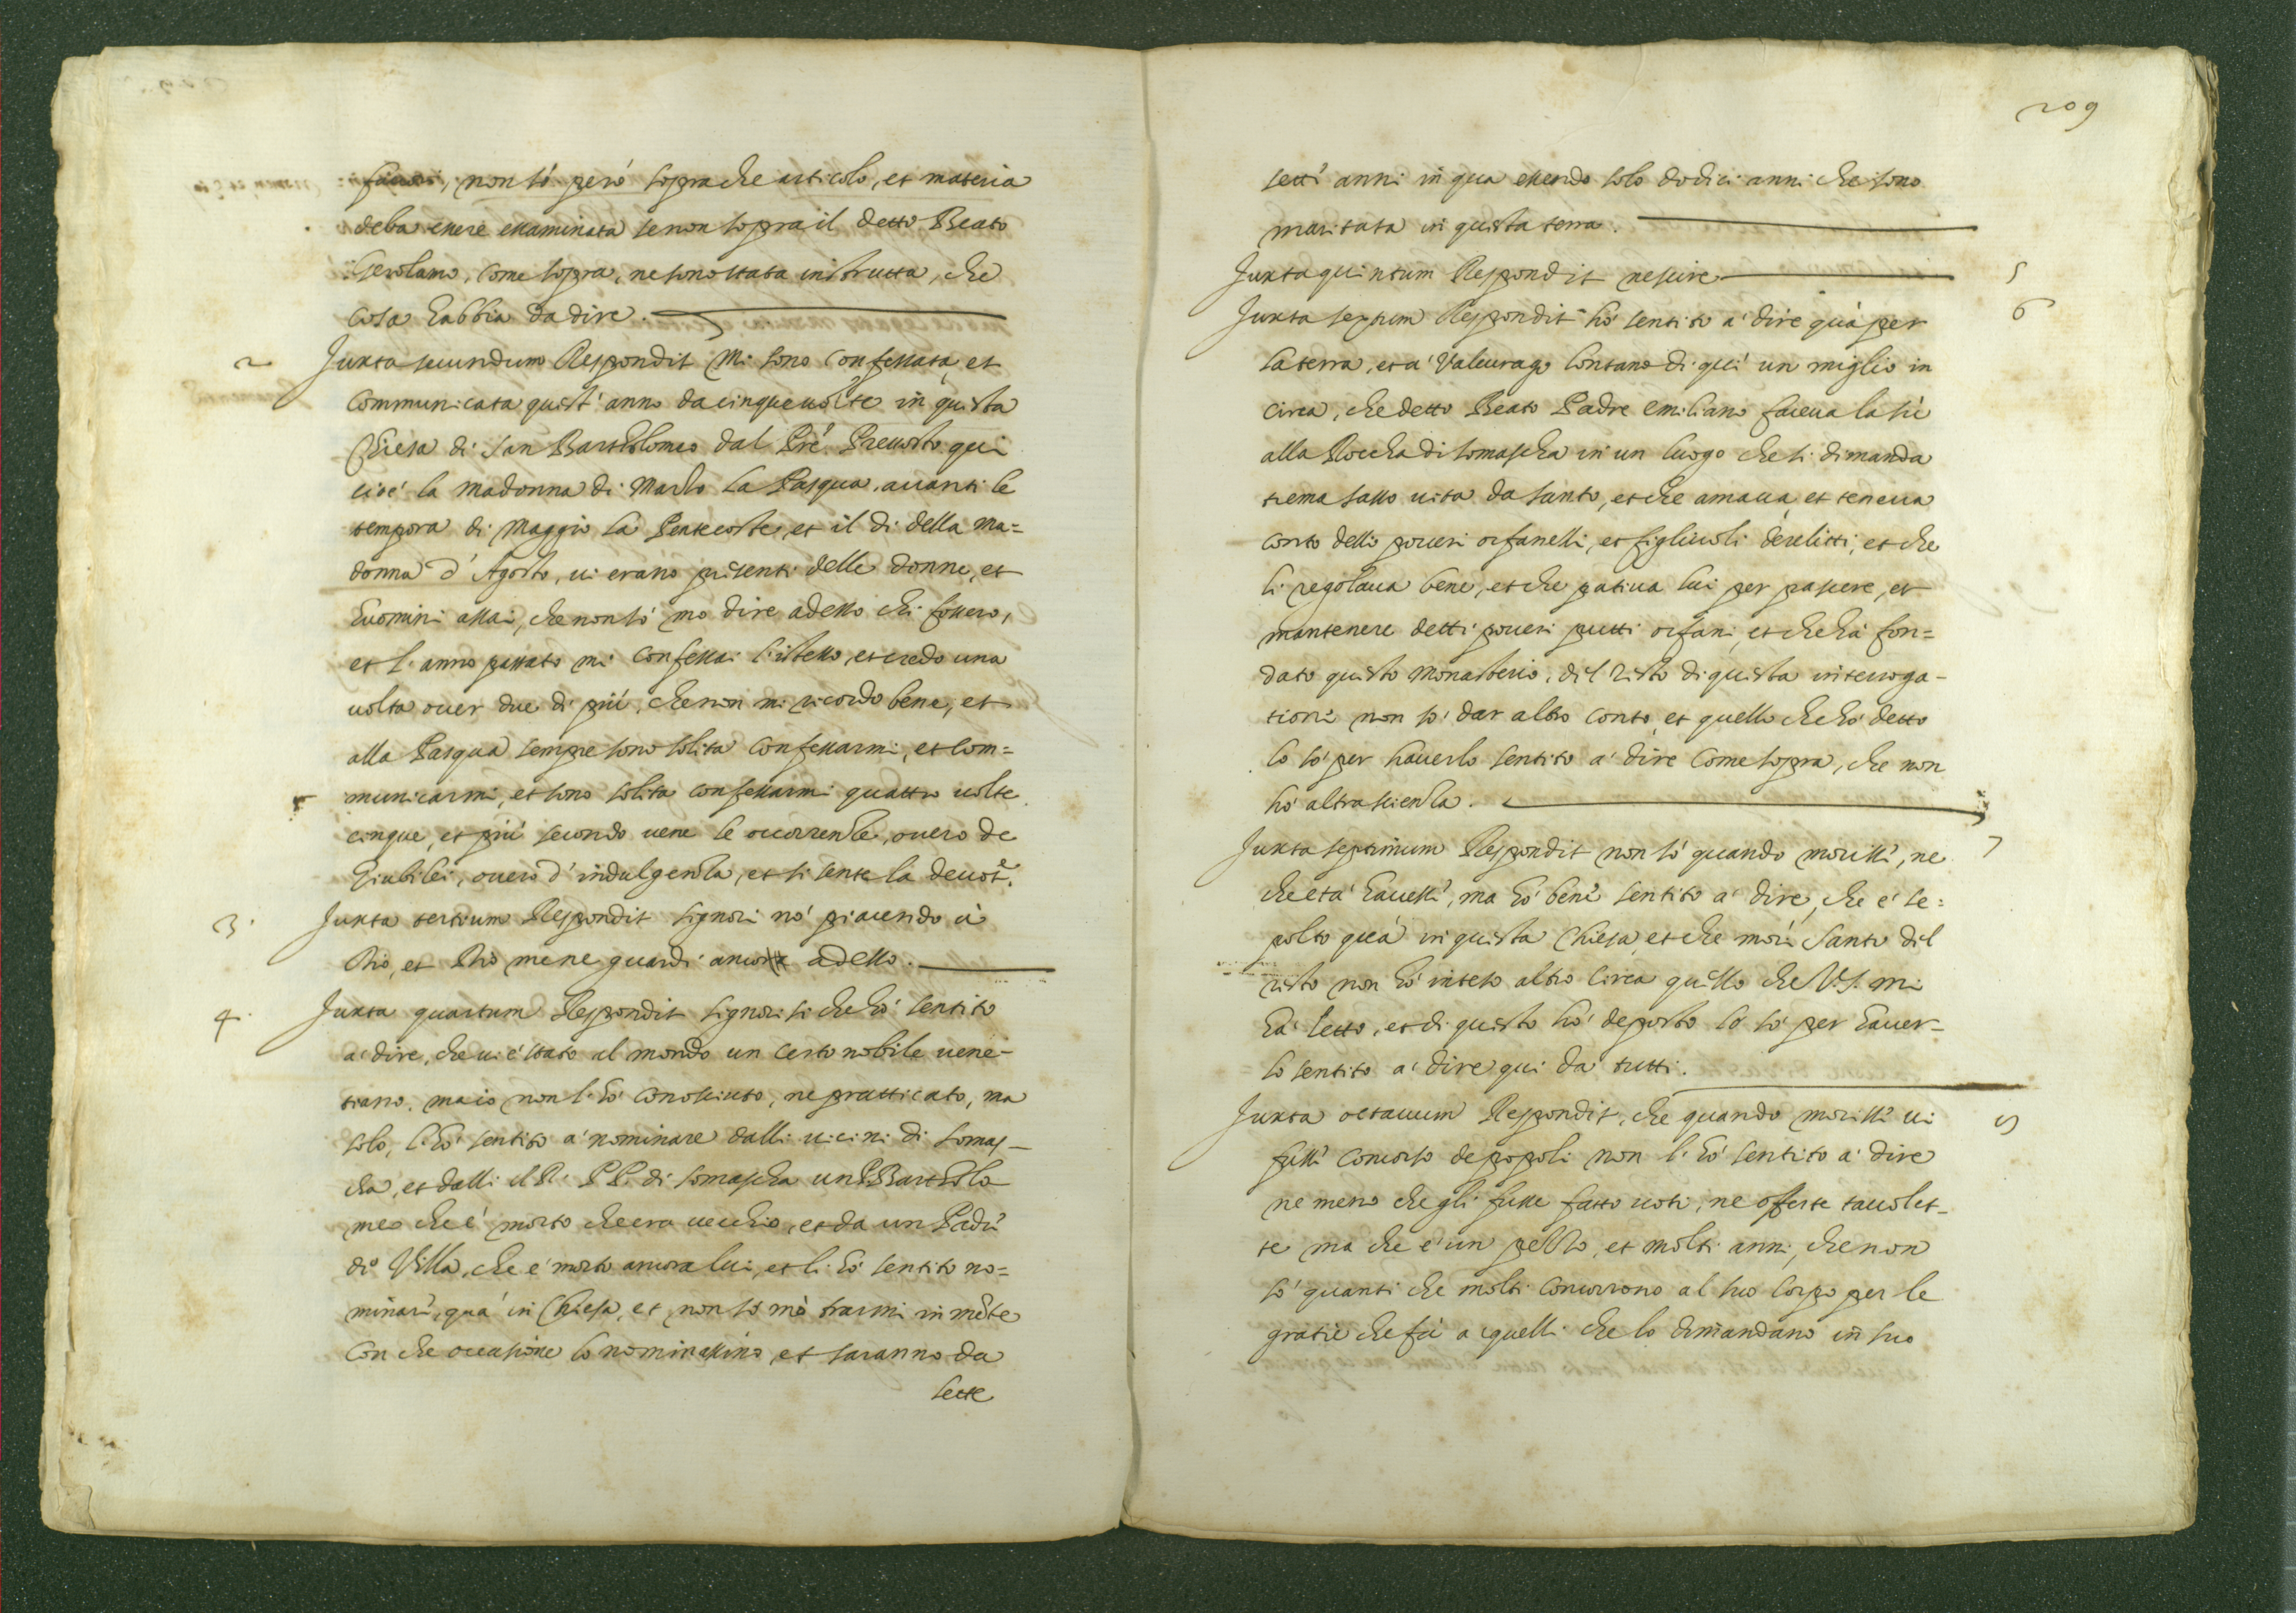 non só però sopra che articolo, et materia
deba essere essaminata se non sopra il detto Beato
Gerolamo, come sopra, ne sono stata instrutta, che
cosa habbia da dire.
2 Juxta secundum Respondit Mi sono confessata, et
communicata quest' anno da cinque uolte in questa
Chiesa di San Bartholomeo dal Pré Preuosto qui
cioé la Madonna di Marzo la Pasqua, auanti le
tempora di Maggio la Pentecoste, et il di della ma=
donna d' Agosto, ui erano presenti delle donne, et
huomini assai, che non só mo dire adesso chi fossero,
et l' anno passato mi confessai l' istesso, et credo una
uolta ouer due di piú, che non mi ricordo bene, et
alla Pasqua sempre sono solita confessarmi, et com=
municarmi, et sono solita confessarmi quattro uolte
cinque, et piú secondo uene le occorrenze, ouero de
Giubilei, ouero d' indulgenza, et si sente la deuot.e
3. Juxta tertium Respondit Signori nó piacendo á
Dio, et Dio me ne guardi adesso.
4. Juxta quartum Respondit Signori si che hó sentito
a dire, che ui é stato al mondo un certo nobile uene-
tiano. ma io non l' hó conosciuto, ne pratticato, ma
solo, l' hó sentito a nominare dalli uicini di Somas-
cha, et dalli M. R. P P. di Somascha un P. Bartholo
meo che é morto che era uecchio, et da un Padre
di Villa, che é morto ancora lui, et li hó sentito no=
minare, quá in Chiesa, et non só mó trarmi in mẽte
con che occasione lo nominassino, et saranno da
sette
209
sette anni in qua essendo solo dodici anni che sono
maritata in questa terra.
Juxta quintum Respondit nescire 5
Juxta sextum Respondit hó sentito a dire quá per 6
la terra, et a Valcurago lontano di quí un miglio in
circa, che detto Beato Padre Emiliano faceua la sú
alla Roccha di Somascha in un luogo che si dimanda
trema sasso uita da santo, et che amaua, et teneua
conto delli poueri orfanelli, et figliuoli derelitti, et che
li regolaua bene, et che patiua lui per pascere, et
mantenere detti poueri putti orfani, et che há fon=
dato questo Monasterio. del resto di questa interroga-
tione non só dar altro conto, et quello che hó detto
lo só per hauerlo sentito a dire come sopra, che non
hó altra scienza.
Juxta septimum Respondit non só quando morisse, ne 7
che etá hauesse, ma hó bene sentito a dire, che é se=
polto quá in questa Chiesa, et che morì Santo del
resto non hó inteso altro circa quello che V. S. mi
há letto, et di questo hó deposto lo só per hauer-
lo sentito a dire qui da tutti.
Juxta octauum Respondit, che quando morisse ui 8
fusse concorso de popoli non l' hó sentito a dire
ne meno che gli fusse fatto uoti, ne offerte tauolet-
te ma che é un pezzo, et molti anni, che non
só quanti che molti concorrono al suo Corpo per le
gratie che fá a quelli che lo dimandano in suo